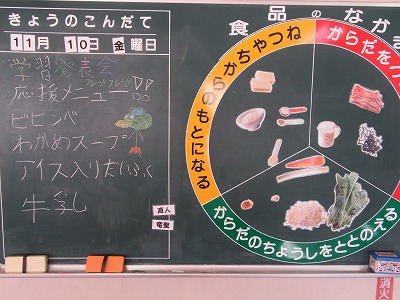 きょうのこんだて
11月 10日 金曜日
学習発表会
フレーフレー!!
応援メニュー
ビビンバ
わかめスープ
アイス入りだいふく
牛乳
直人
竜聖
食品のなかま
ちからやねつ
のもとになる
からだをつ
からだのちょうしをととのえる
消火